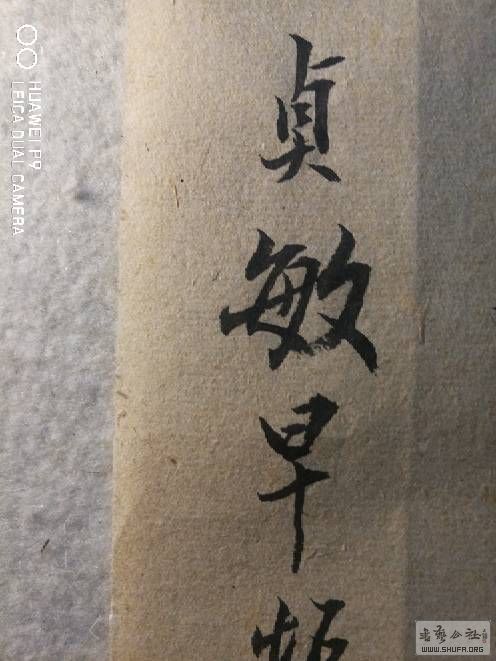 貞敏早
HUAWEI P9
LEICA DUAL CAMERA
书艺公社
WWW.SHUFA.ORG